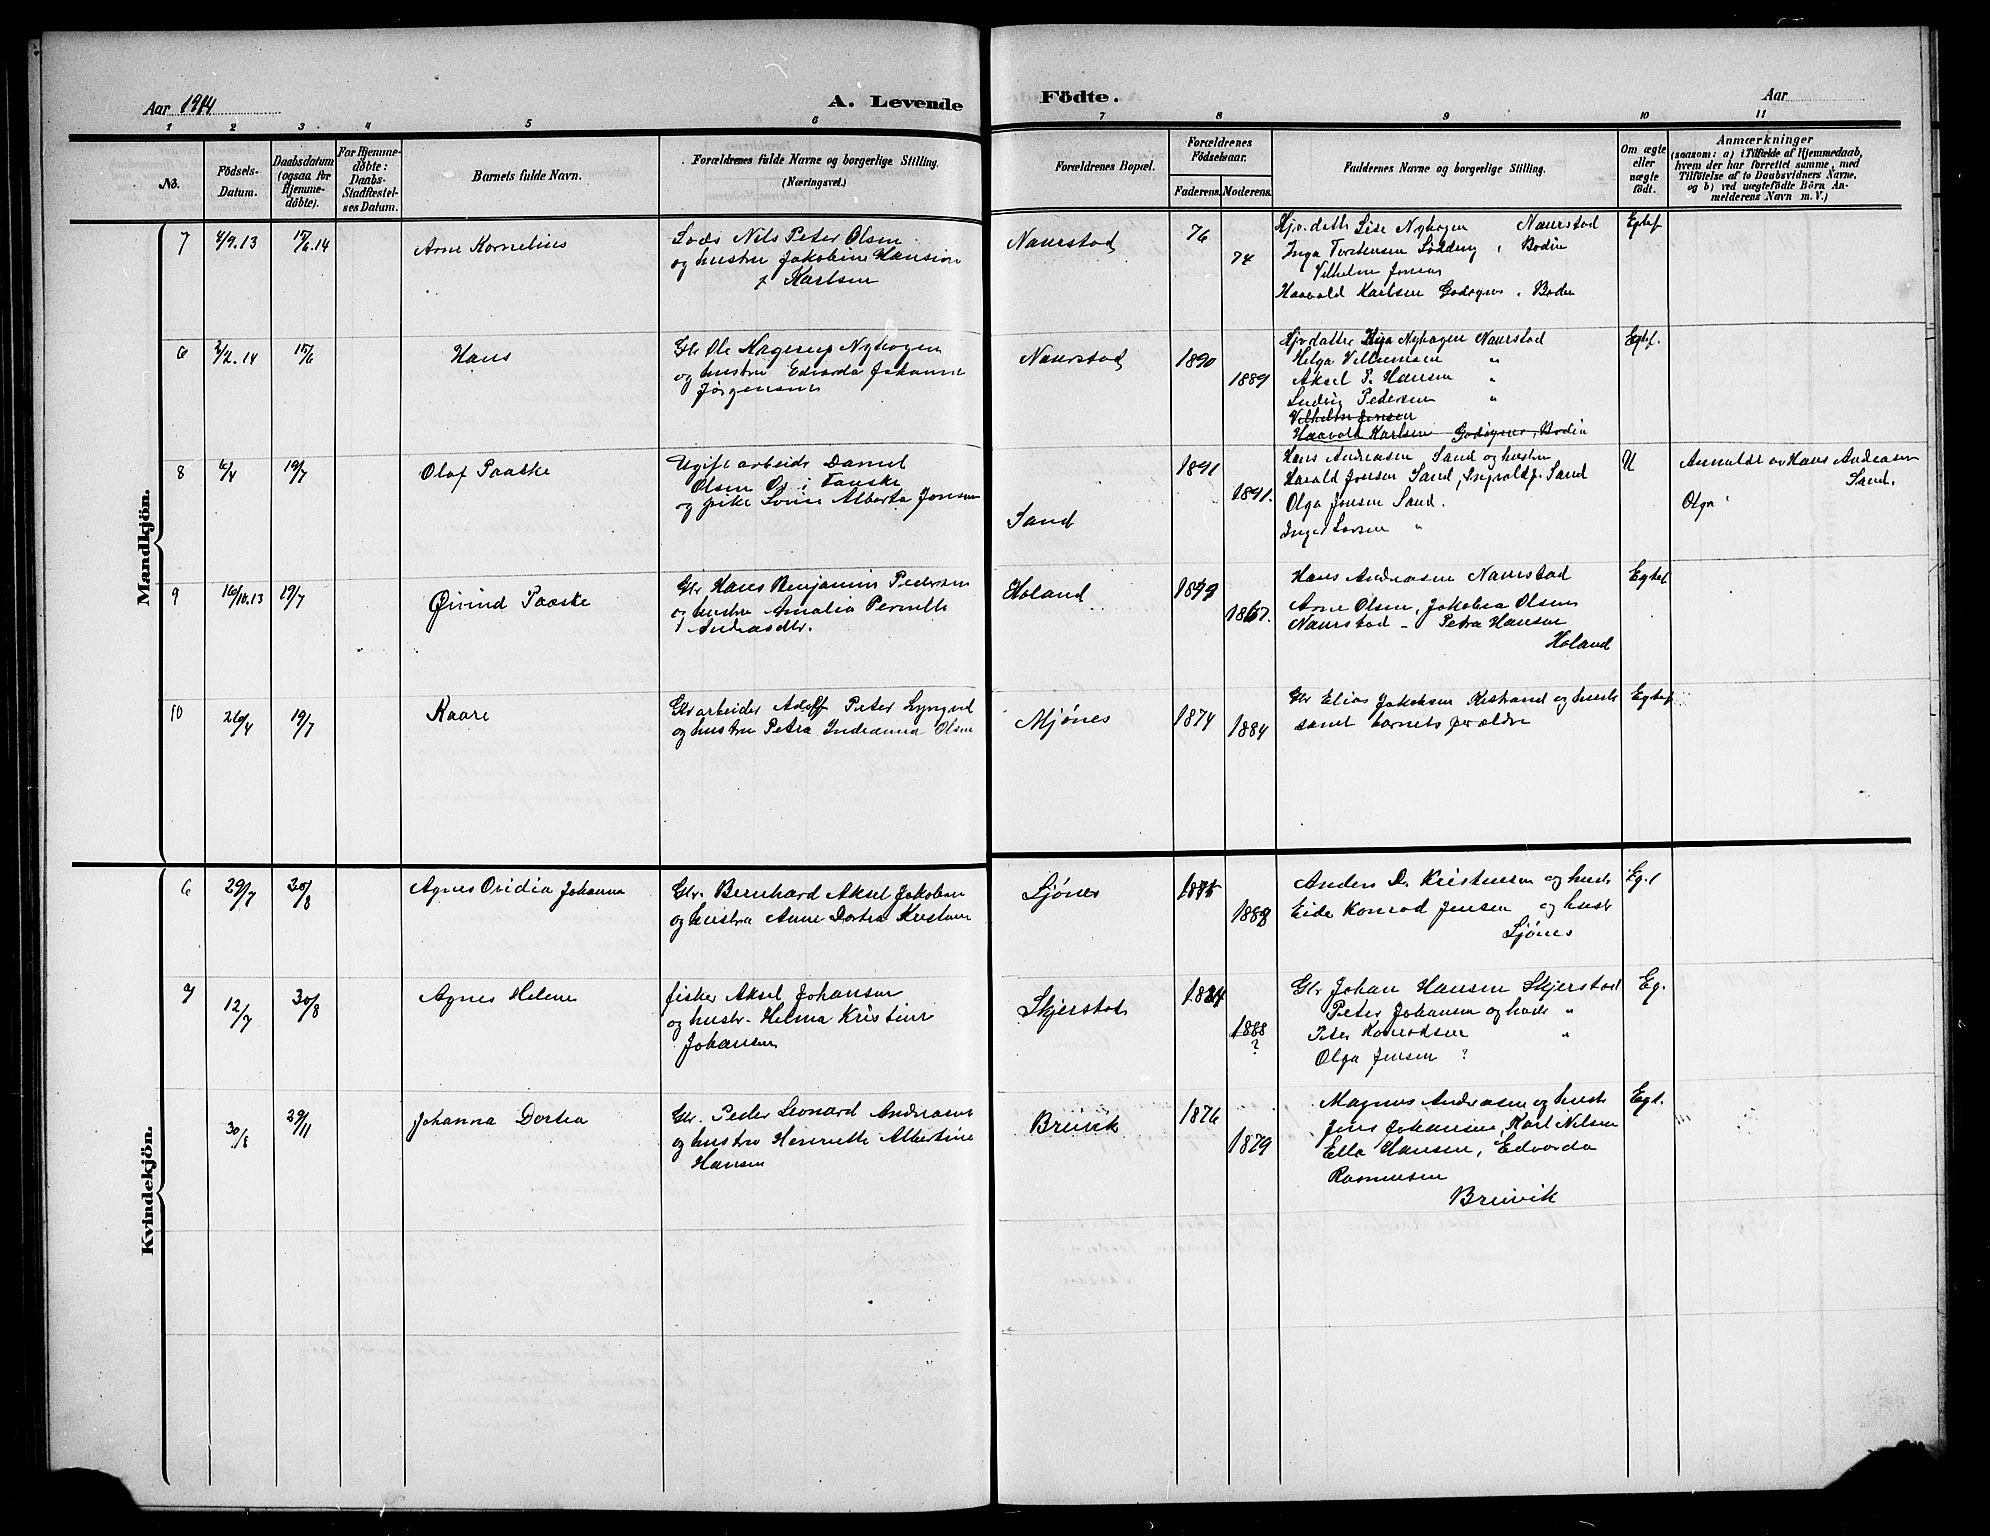 Aar 1914
A. Levende Födte.
Aar
1 2 3 4 5 6 7 8 9 10 11
No.
Födsels-Datum.
Daabsdatum (ogsaa for Hjemmedöbte).
For Hjemmedöbte: Daabs-Stadfæstelses Datum.
Barnets fulde Navn.
Forældrenes fulde Navne og borgerlige Stilling.
(Næringsvei.)
Forældrenes Bopæl.
Forældrenes Födselsaar.
Faderens. Moderens.
Faddernes Navne og borgerlige Stilling.
Om ægte eller uægte födt.
Anmærkninger
(saasom: a) i Tilfælde af Hjemmedaab,
hvem der har forrettet samme, med
Tilföielse af to Daabsvidners Navne,
og b) ved uægtefödte Börn An-
melderens Navn m. V.)
Mandkjön.
7 4/9.13 15/6.14 Arne Kornelius
Lods Nils Peter Olsen
og hustru Jakobine Hansine
f. Karlsen
Naurstad 76 74
Lise Nyhagen Naurstad
Inga Torstensen Bodin
Vilhelm Jensen
Haavold Karlsen Godøynes, Bodin
Egtef.
6 2/2.14 15/6 Hans
Gbr Ole Hagerup Nyhagen
og hustru Edvarda Johanne
Jørgensen
Naurstad 1890 1889
Nyhagen Naurstad
Helga Villumsen "
Aksel P. Hansen "
Ludvig Pedersen "
Vilhelm Jensen
Haavold Karlsen Godøynes, Bodin
Egtef.
8 6/4 19/7 Olaf Paaske
Ugift arbeider Daniel
Olsen Os i Fauske
og pike Lovise Alberta Jensen
Sand 1891 1891.
Hans Andreasen Sand og hustru
Harald Jensen Sand, Sand
Olga Jensen Sand.
Inger Larsen "
U
Anmeldt av Hans Andreasen
Sand.
Olga
9 16/10.13 19/7 Øivind Paaske
Gbr Hans Benjamin Pedersen
og hustru Amalia Pernille
Andreasdtr.
Holand 1867.
Hans Andreasen Naurstad
Arne Olsen, Jakobea Olsen
Naurstad - Petra Hansen
Holand
Egtef
10 26/4 19/7 Kaare
Gbr arbeider Adolf Peter
og hustru Petra Olsen
Mjønes 1874 1884
Gbr Elias Jakobsen og hustr
samt barnets forældre
Egtef
Kvindekjön.
6 29/7 30/8 Agnes Ovidia Johanna
Gbr. Bernhard Aksel Jakobsen
og hustru Anne Dortea Kristensen
Ljønes 1888
Anders D. Kristensen og hustr
Eide Konrad Jensen og hustr
Ljønes
Eg.t
7 12/7 30/8 Agnes Helene
fisker Aksel Johansen
og hustr. Helma Kristine
Johansen
Skjerstad 1888
?
Gbr Johan Hansen Skjerstad
Peter Johansen og hustr "
Peter Konradsen "
Olga Jensen ?
Eg.
30/8 29/11 Johanna Dortea
Gbr. Peder Leonard Andreasen
og hustru Henriette Albertine
Hansen
Breivik 1876 1879
Magnus Andreasen og hustr
Jens Johansen, Karl Nilsen
Ella Hansen, Edvarda
Rasmussen
Breivik
Egt.